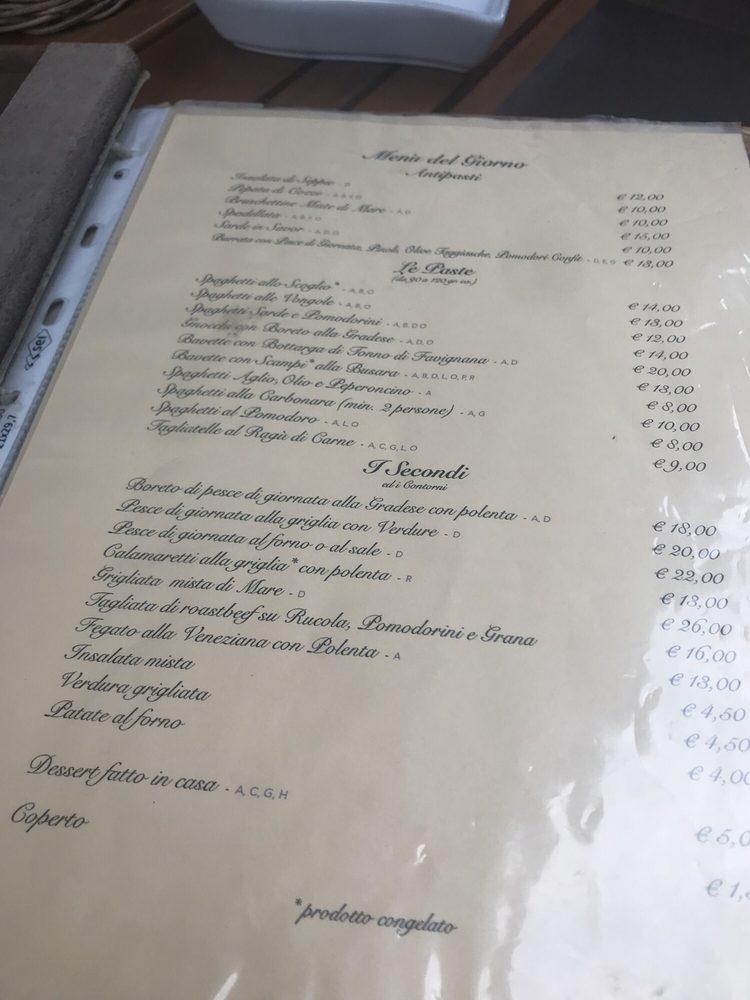 Menù del Giorno
Antipasti
Insalata di Seppie - D € 12,00
Pepata di Cozze € 10,00
Bruschettine Miste di Mare - A,D € 10,00
Spadellata € 15,00
Sarde in Savor - A,D,O € 10,00
Burrata con Pesce di Giornata, Pinoli, Olive Taggiasche, Pomodori Confit - D,E,G € 13,00
Le Paste
(da 90 a 120 gr. ca.)
Spaghetti allo Scoglio* - A,B,O € 14,00
Spaghetti alle Vongole - A,B,O € 13,00
Spaghetti Sarde e Pomodorini - A,B,D,O € 12,00
Gnocchi con Boreto alla Gradese - A,D,O € 14,00
Bavette con Bottarga di Tonno di Favignana - A,D € 20,00
Bavette con Scampi* alla Busara - A,B,D,L,O,P,R € 13,00
Spaghetti Aglio, Olio e Peperoncino - A € 8,00
Spaghetti alla Carbonara (min. 2 persone) - A,G € 10,00
Spaghetti al Pomodoro - A,L,O € 8,00
Tagliatelle al Ragù di Carne - A,C,G,L,O € 9,00
I Secondi
ed i Contorni
Boreto di pesce di giornata alla Gradese con polenta - A,D € 18,00
Pesce di giornata alla griglia con Verdure - D € 20,00
Pesce di giornata al forno o al sale - D € 22,00
Calamaretti alla griglia* con polenta - R € 13,00
Grigliata mista di Mare - D € 26,00
Tagliata di roastbeef su Rucola, Pomodorini e Grana € 16,00
Fegato alla Veneziana con Polenta - A € 13,00
Insalata mista € 4,50
Verdura grigliata € 4,50
Patate al forno € 4,00
Dessert fatto in casa - A,C,G,H € 5,0
Coperto € 1,
*prodotto congelato